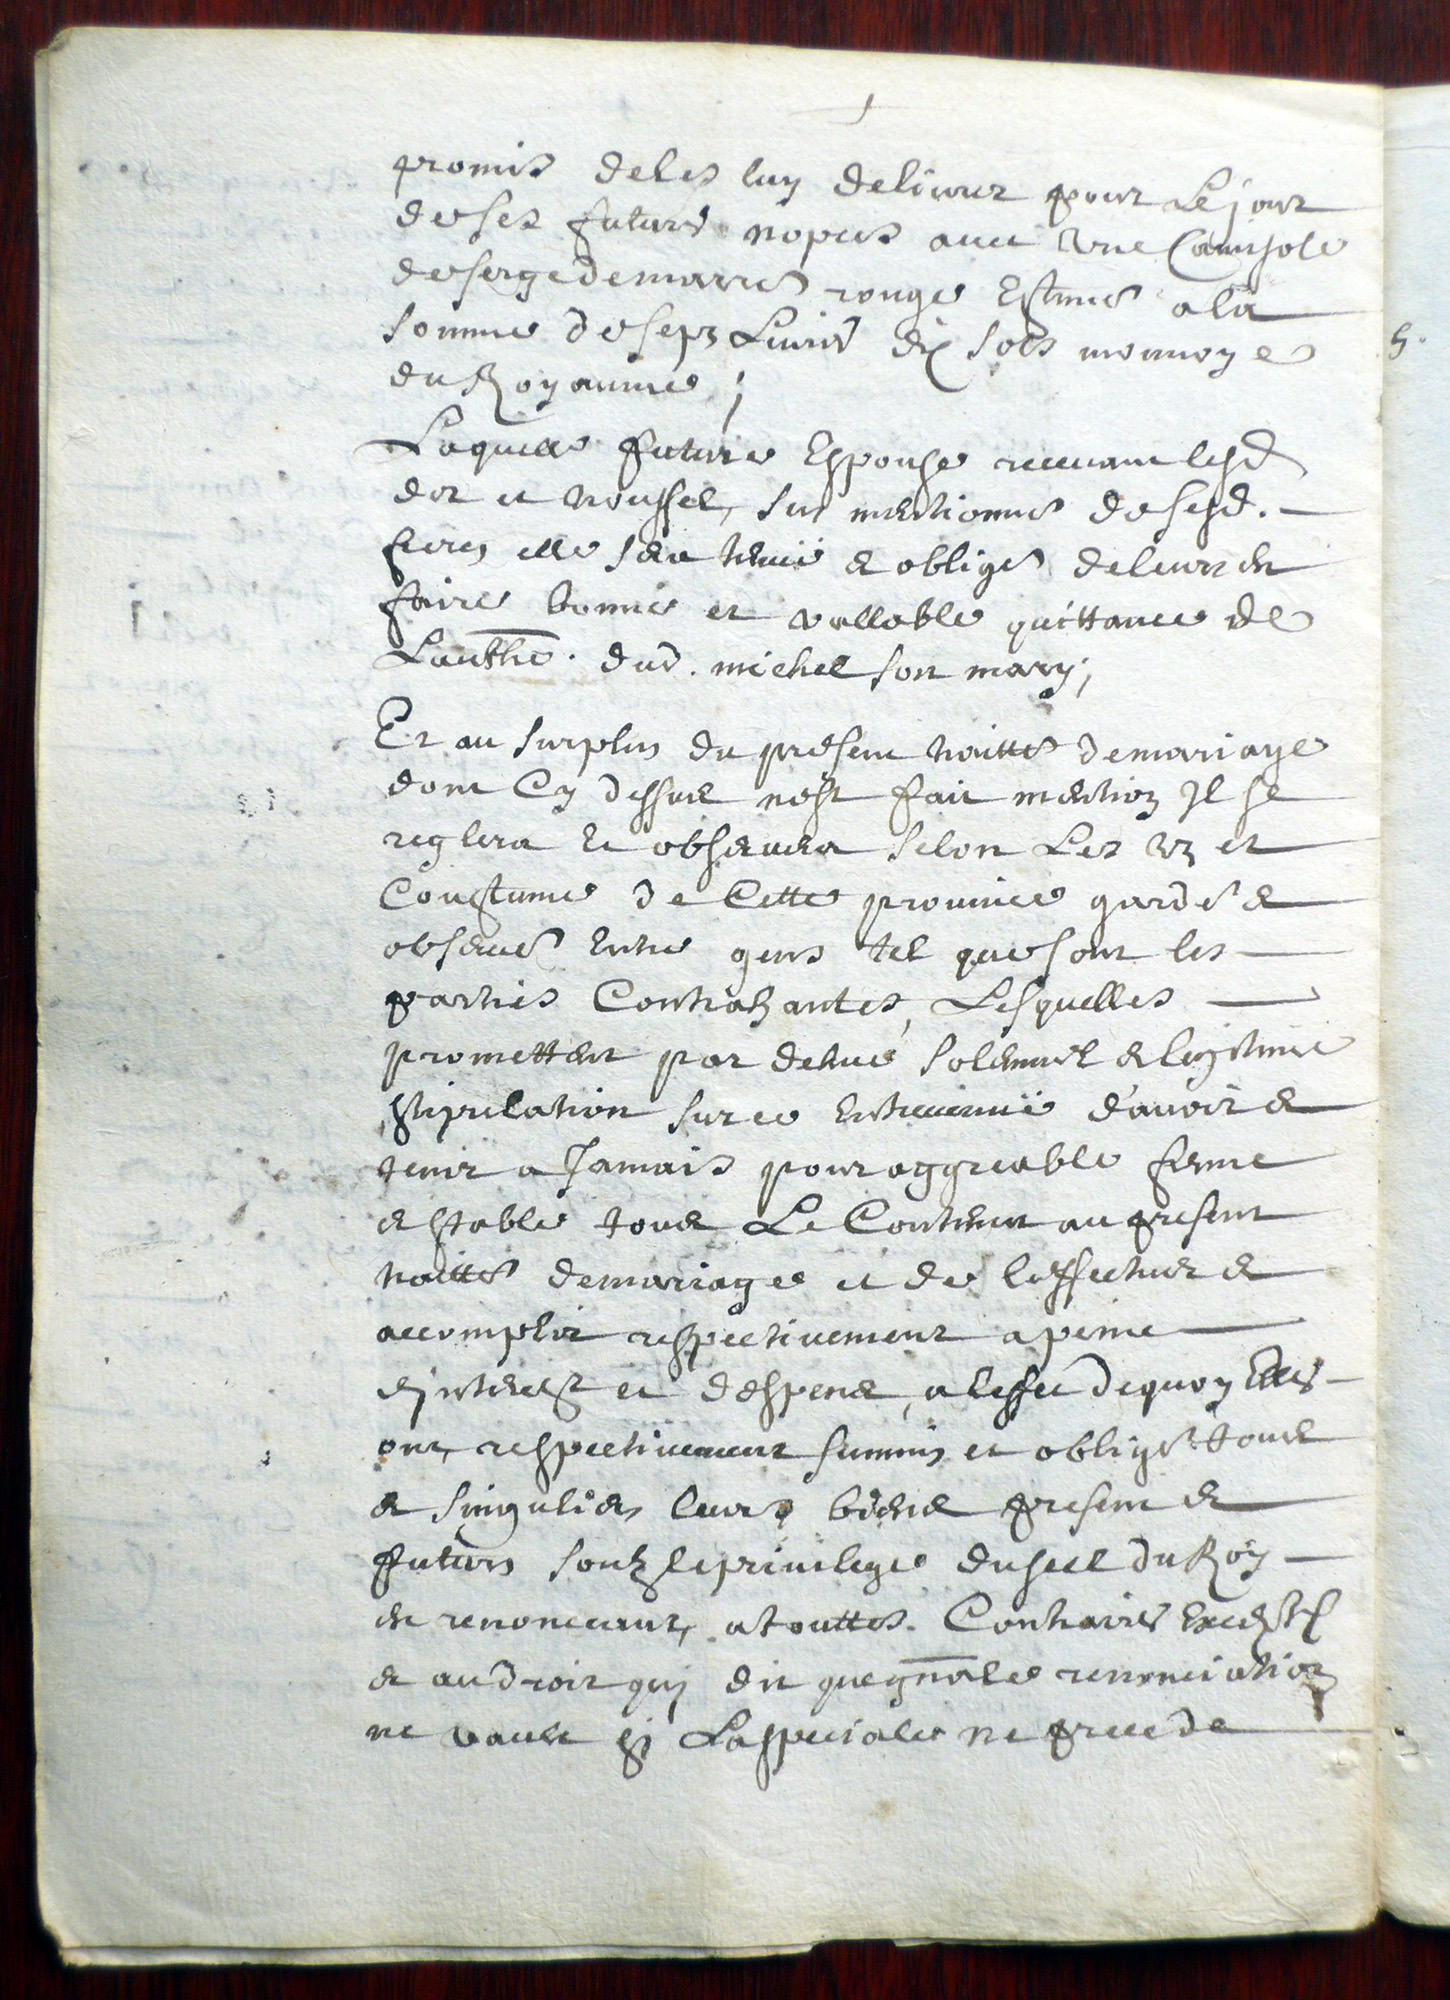 promis de les luy delivrer pour Le jour
de ses futurs nopces avec Une Camisole
de serge de rouge Estimé a la
somme de sept Livres dix sols monnoye
du Royaume ;
Laquelle future Espouse recevant lesd
dot et troussel, sus mentionnés de sesd.
freres elle sera tenuë & obligé de leur en
faire bonne et vallable quittance de
Lauthé. dud. michel son mary ;
Et au surplus du present traitté de mariage
dont Cy dessus n'est fait mention Il se
reglera Et observera selon Les uz et
Coustume de Cette province gardé &
observé Entre gens tel que sont les
parties Contrahantes, Lesquelles
promettent par deuë solemnel & legitime
stipulation sur ce Entrevenuë d'avoir &
tenir a Jamais pour aggreable ferme
& stable tous Le Contenu au present
traitté de mariage et de l'effectuer &
accomplir respectivement a peine
d'jnterest et despens, a l'effet de quoy Elles
ont respectivement summis et obligé tous
& singuliers leurs biens present &
futurs soubz le privilege du seel du Roy
en renonceant, a touttes Contraires Except
& au droit quj dit que gñale renonciation
ne vault sj La speciale ne precede
5.